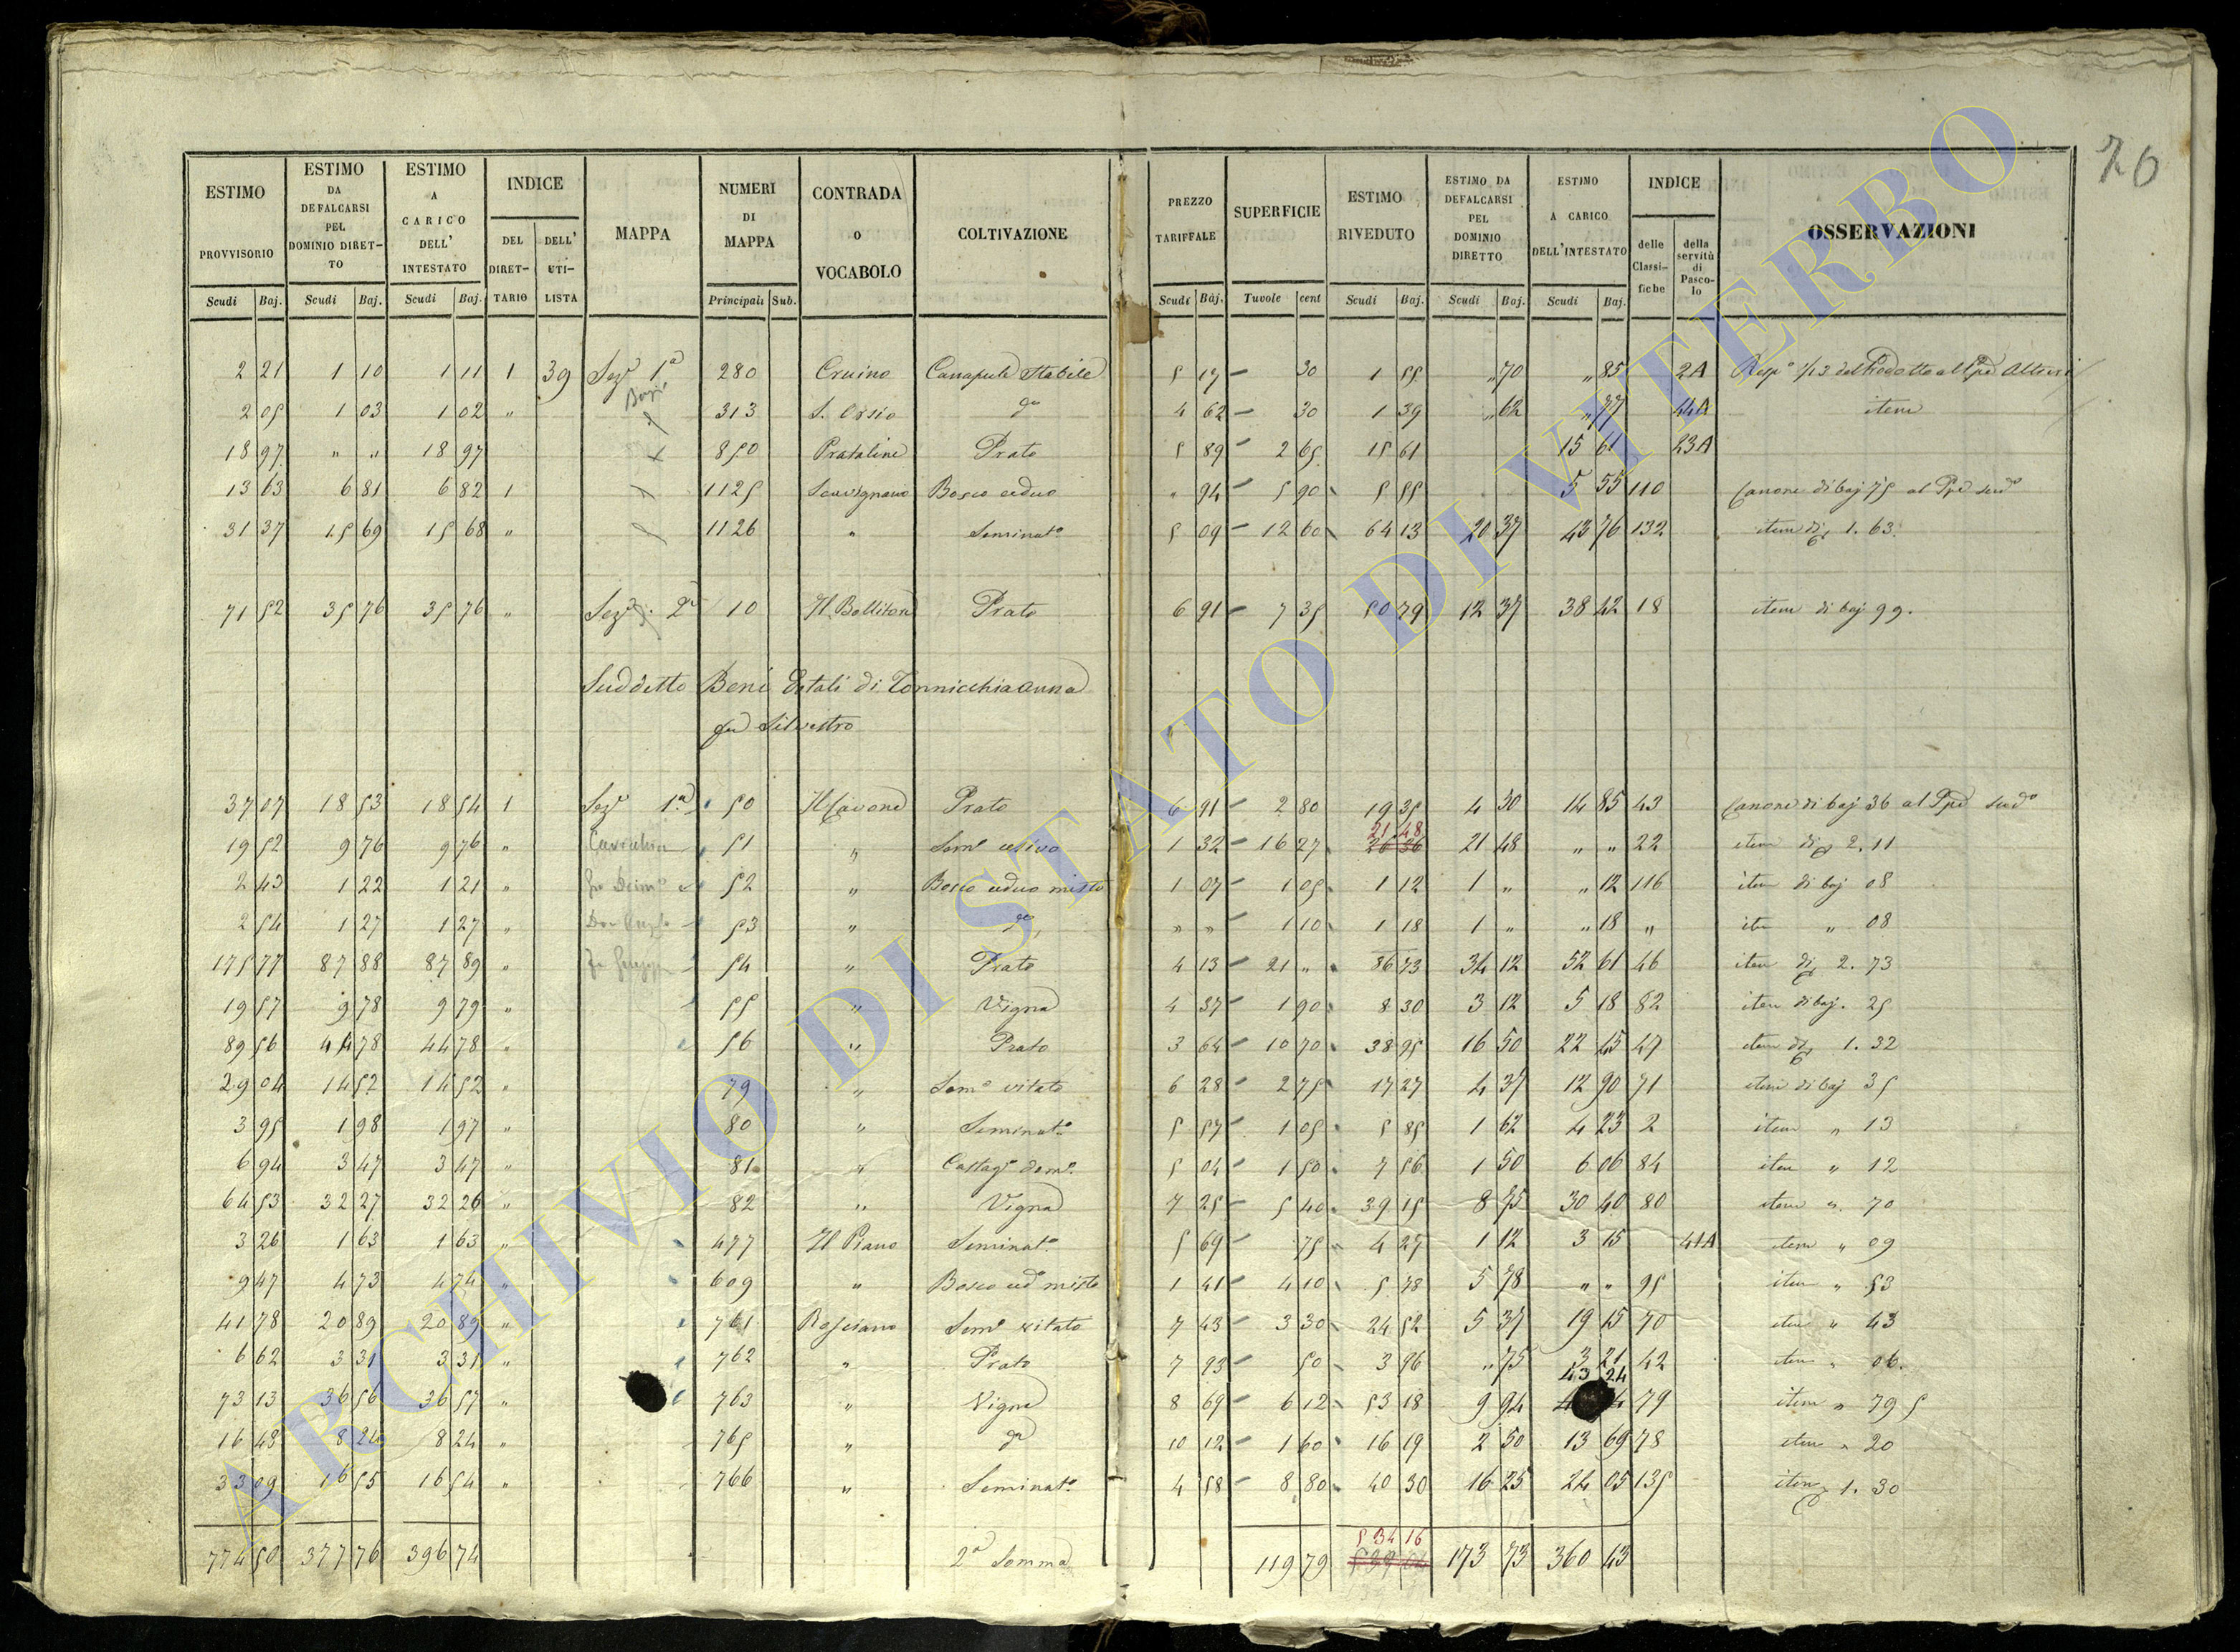 76
ESTIMO PROVVISORIO Scudi Baj. | ESTIMO DA DEFALCARSI PEL DOMINIO DIRET-TO Scudi Baj. | ESTIMO A CARICO DELL' INTESTATO Scudi Baj. | INDICE DEL DIRET-TARIO DELL' UTI-LISTA | MAPPA | NUMERI DI MAPPA Principali Sub. | CONTRADA O VOCABOLO | COLTIVAZIONE | PREZZO TARIFFALE Scudi Baj. | SUPERFICIE Tavole cent | ESTIMO RIVEDUTO Scudi Baj. | ESTIMO DA DEFALCARSI PEL DOMINIO DIRETTO Scudi Baj. | ESTIMO A CARICO DELL'INTESTATO Scudi Baj. | INDICE delle Classi-fiche della servitù di Pasco-lo | OSSERVAZIONI
2 21 1 10 1 11 1 39 Sez.e 1a 280 Cruino Canapule Stabile 5 17 30 1 55 " 70 " 85 2A
2 05 1 03 1 02 " 313 S. Orsio do 4 62 30 1 39 " 62 " 77 44A item
18 97 " " 18 97 850 Pratatine Prato 5 89 2 65 15 61 15 61 23A
13 63 6 81 6 82 1 1125 Scuvignano Bosco ceduo " 94 5 90 5 55 5 55 110 Canone di baj 75 al Ppe sudo
31 37 15 69 15 68 " 1126 " Seminato 5 09 12 60 64 13 20 37 43 76 132 item di 1. 63.
71 52 35 76 35 76 " Sez.e 2a 10 Il Bollitore Prato 6 91 7 35 50 79 12 37 38 42 18 item di baj 99.
Suddetto Beni Dotali di Tonnicchia Anna
fu Silvestro
37 07 18 53 18 54 1 Sez.e 1a 50 Il Cavone Prato 6 91 2 80 19 35 4 50 14 85 43 Canone di baj 36 al Ppe sudo
19 52 9 76 9 76 " 51 " Sem.e olivo 1 32 16 27 21 48 26 36 21 48 " " 22 item di 2. 11
2 43 1 22 1 21 " 52 " Bosco ceduo misto 1 07 1 05 1 12 1 " " 12 116 item di baj 08
2 54 1 27 1 27 " 53 " do " " 1 10 1 18 1 " " 18 " item " 08
175 77 87 88 87 89 " 54 " Prato 4 13 21 " 86 73 34 12 52 61 46 item di 2. 73
19 57 9 78 9 79 " 55 " Vigna 4 37 1 90 8 30 3 12 5 18 82 item di baj. 25
89 56 44 78 44 78 " 56 " Prato 3 64 10 70 38 95 16 50 22 45 47 item di 1. 32
29 04 14 52 14 52 " 79 " Sem.o vitato 6 28 2 75 17 27 4 37 12 90 71 item di baj 35
3 95 1 98 1 97 " 80 " Seminato 5 57 1 05 5 85 1 62 4 23 2 item " 13
6 94 3 47 3 47 " 81 " Castago domo 5 04 1 50 7 56 1 50 6 06 84 item " 12
64 53 32 27 32 26 " 82 " Vigna 7 25 5 40 39 15 8 75 30 40 80 item " 70
3 26 1 63 1 63 " 477 Il Piano Seminato 5 69 75 4 27 1 12 3 15 41A item " 09
9 47 4 73 4 74 " 609 " Bosco cedo misto 1 41 4 10 5 78 5 78 " " 95 item " 53
41 78 20 89 20 89 " 761 Rosciano Sem.o vitato 7 43 3 30 24 52 5 37 19 15 70 item " 43
6 62 3 31 3 31 " 762 " Prato 7 93 50 3 96 " 75 3 21 42 item " 06.
73 13 36 56 36 57 " 763 " Vigna 8 69 6 12 53 18 9 94 43 24 79 item " 79 5
16 48 8 24 8 24 " 765 " do 10 12 1 60 16 19 2 50 13 69 78 item " 20
33 09 16 55 16 54 " 766 " Seminato 4 58 8 80 40 30 16 25 24 05 135 item 1. 30
774 50 377 76 396 74 2a Somma 119 79 534 16 173 73 360 43
ARCHIVIO DI STATO DI VITERBO